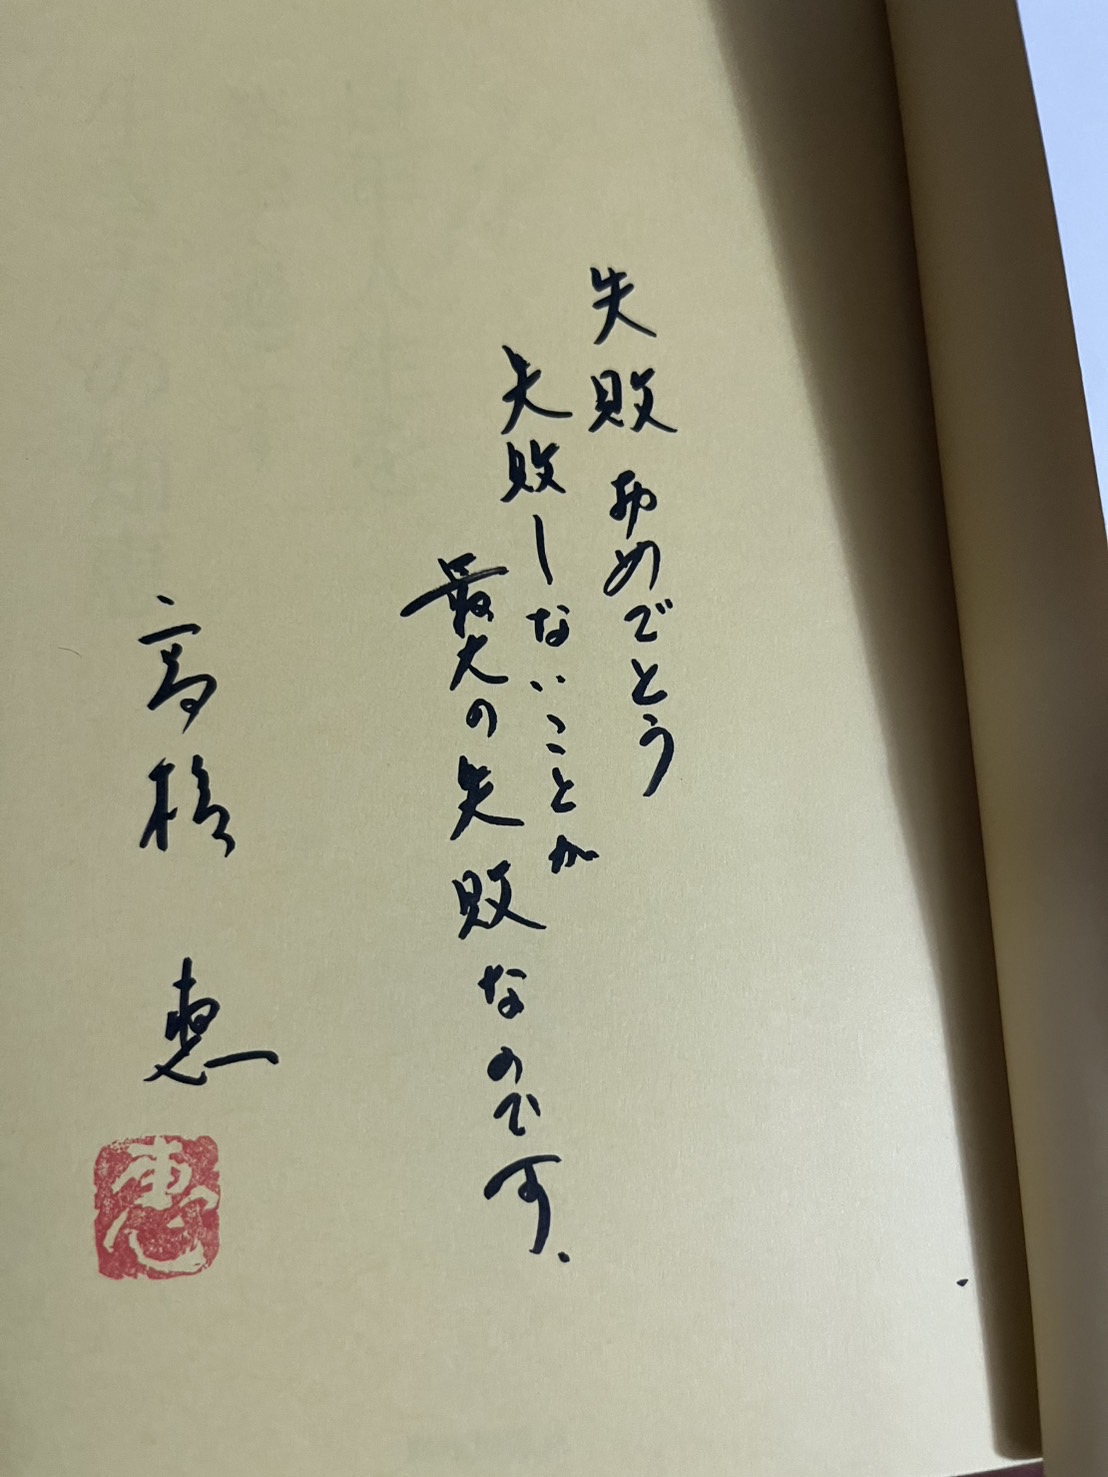 失敗おめでとう
失敗しないことが
最大の失敗なのです.
高橋 恵
恵